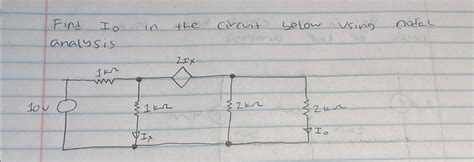 Find Io in the circuit below using nodal
analysis
2Ix
1kΩ
10v
1kΩ
2kΩ
2kΩ
Ix
Io